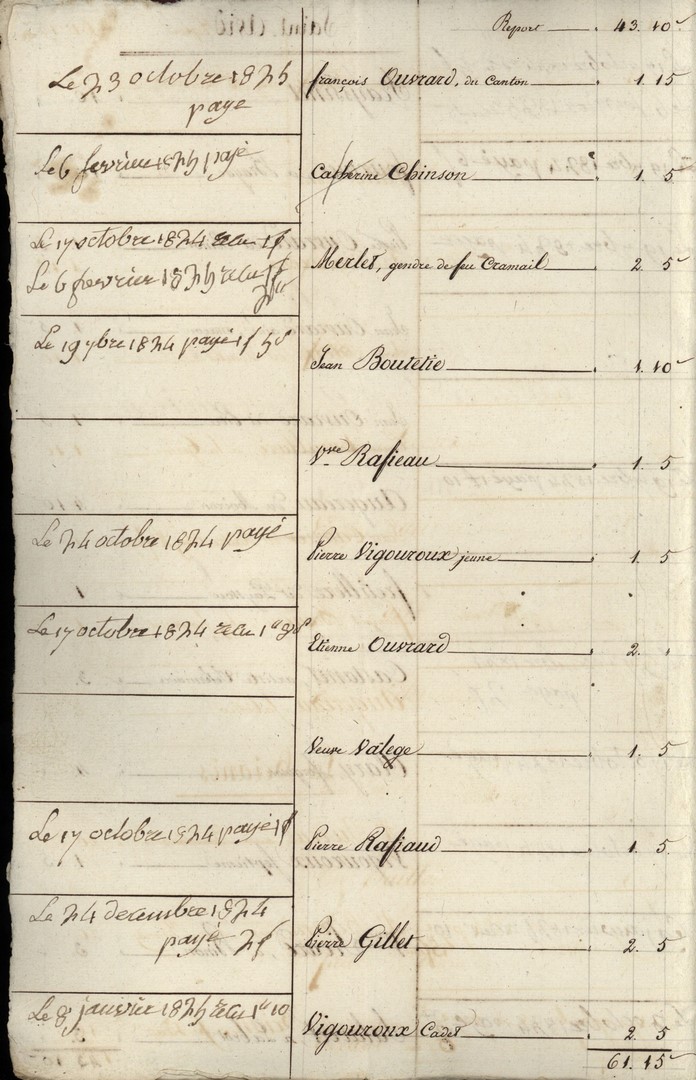 Report . 43. 10
Le 23 octobre 1825
paye
françois Ouvrard, du Canton . 1. 15
Le 6 fevrier 1825 payé
Catherine Chinson . 1. 5
Le 17 octobre 1824 recu 1f
Le 6 fevrier 1825 recu 1f
Merlet, gendre de feu Cramail . 2. 5
Le 19 9bre 1824 payé 1f 5s
Jean Boutetie . 1. 10
Vve Rasieau . 1. 5
Le 24 octobre 1824 payé
Pierre Vigouroux jeune . 1. 5
Le 17 octobre 1824 recu 1
Etienne Ouvrard . 2. .
Veuve Valege . 1. 5
Le 17 octobre 1824 payé 1f
Pierre Rasiaud . 1. 5
Le 24 decembre 1824
payé 2f
Pierre Gillet . 2. 5
Le 8 janvier 1825 recu 1 10
Vigouroux Cadet . 2. 5
61. 15